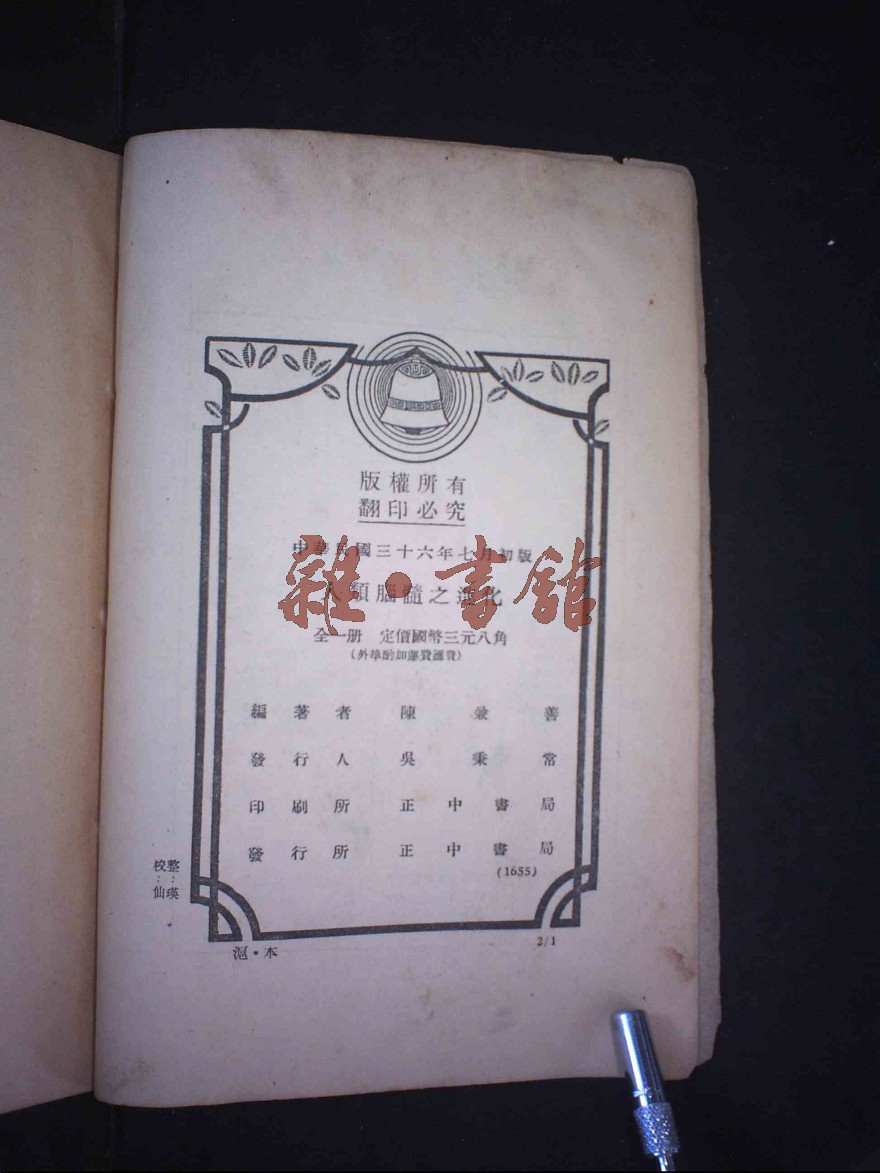 版權所有
翻印必究
中華民國三十六年七月初版
人類腦髓之進化
雜·書館
全一册 定價國幣三元八角
(外埠酌加運費匯費)
編著者 陳 善
發行人 吳秉常
印刷所 正中書局
發行所 正中書局
(1655)
校:仙
整:瑛
滬·本
2/1